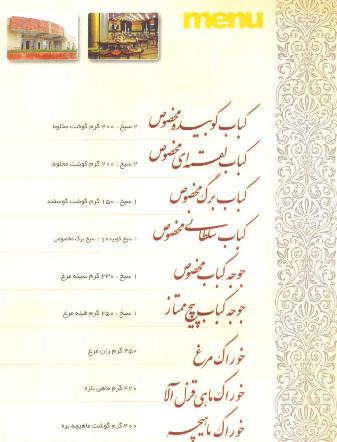 menu
کباب کوبیده مخصوص ۲ سیخ . ۲۰۰ گرم گوشت مخلوط
کباب لقمه ای مخصوص ۲ سیخ . ۲۰۰ گرم گوشت مخلوط
کباب برگ مخصوص ۱ سیخ . ۱۵۰ گرم گوشت گوسفند
کباب سلطانی مخصوص ۱ سیخ کوبیده و ۱ سیخ برگ مخصوص
جوجه کباب مخصوص ۱ سیخ . ۲۳۰ گرم سینه مرغ
جوجه کباب پیچ ممتاز ۱ سیخ . ۲۵۰ گرم فیله مرغ
خوراک مرغ ۴۵۰ گرم ران مرغ
خوراک ماهی قزل آلا ۴۲۰ گرم ماهی تازه
خوراک ماهیچه ۳۰۰ گرم گوشت ماهیچه بره